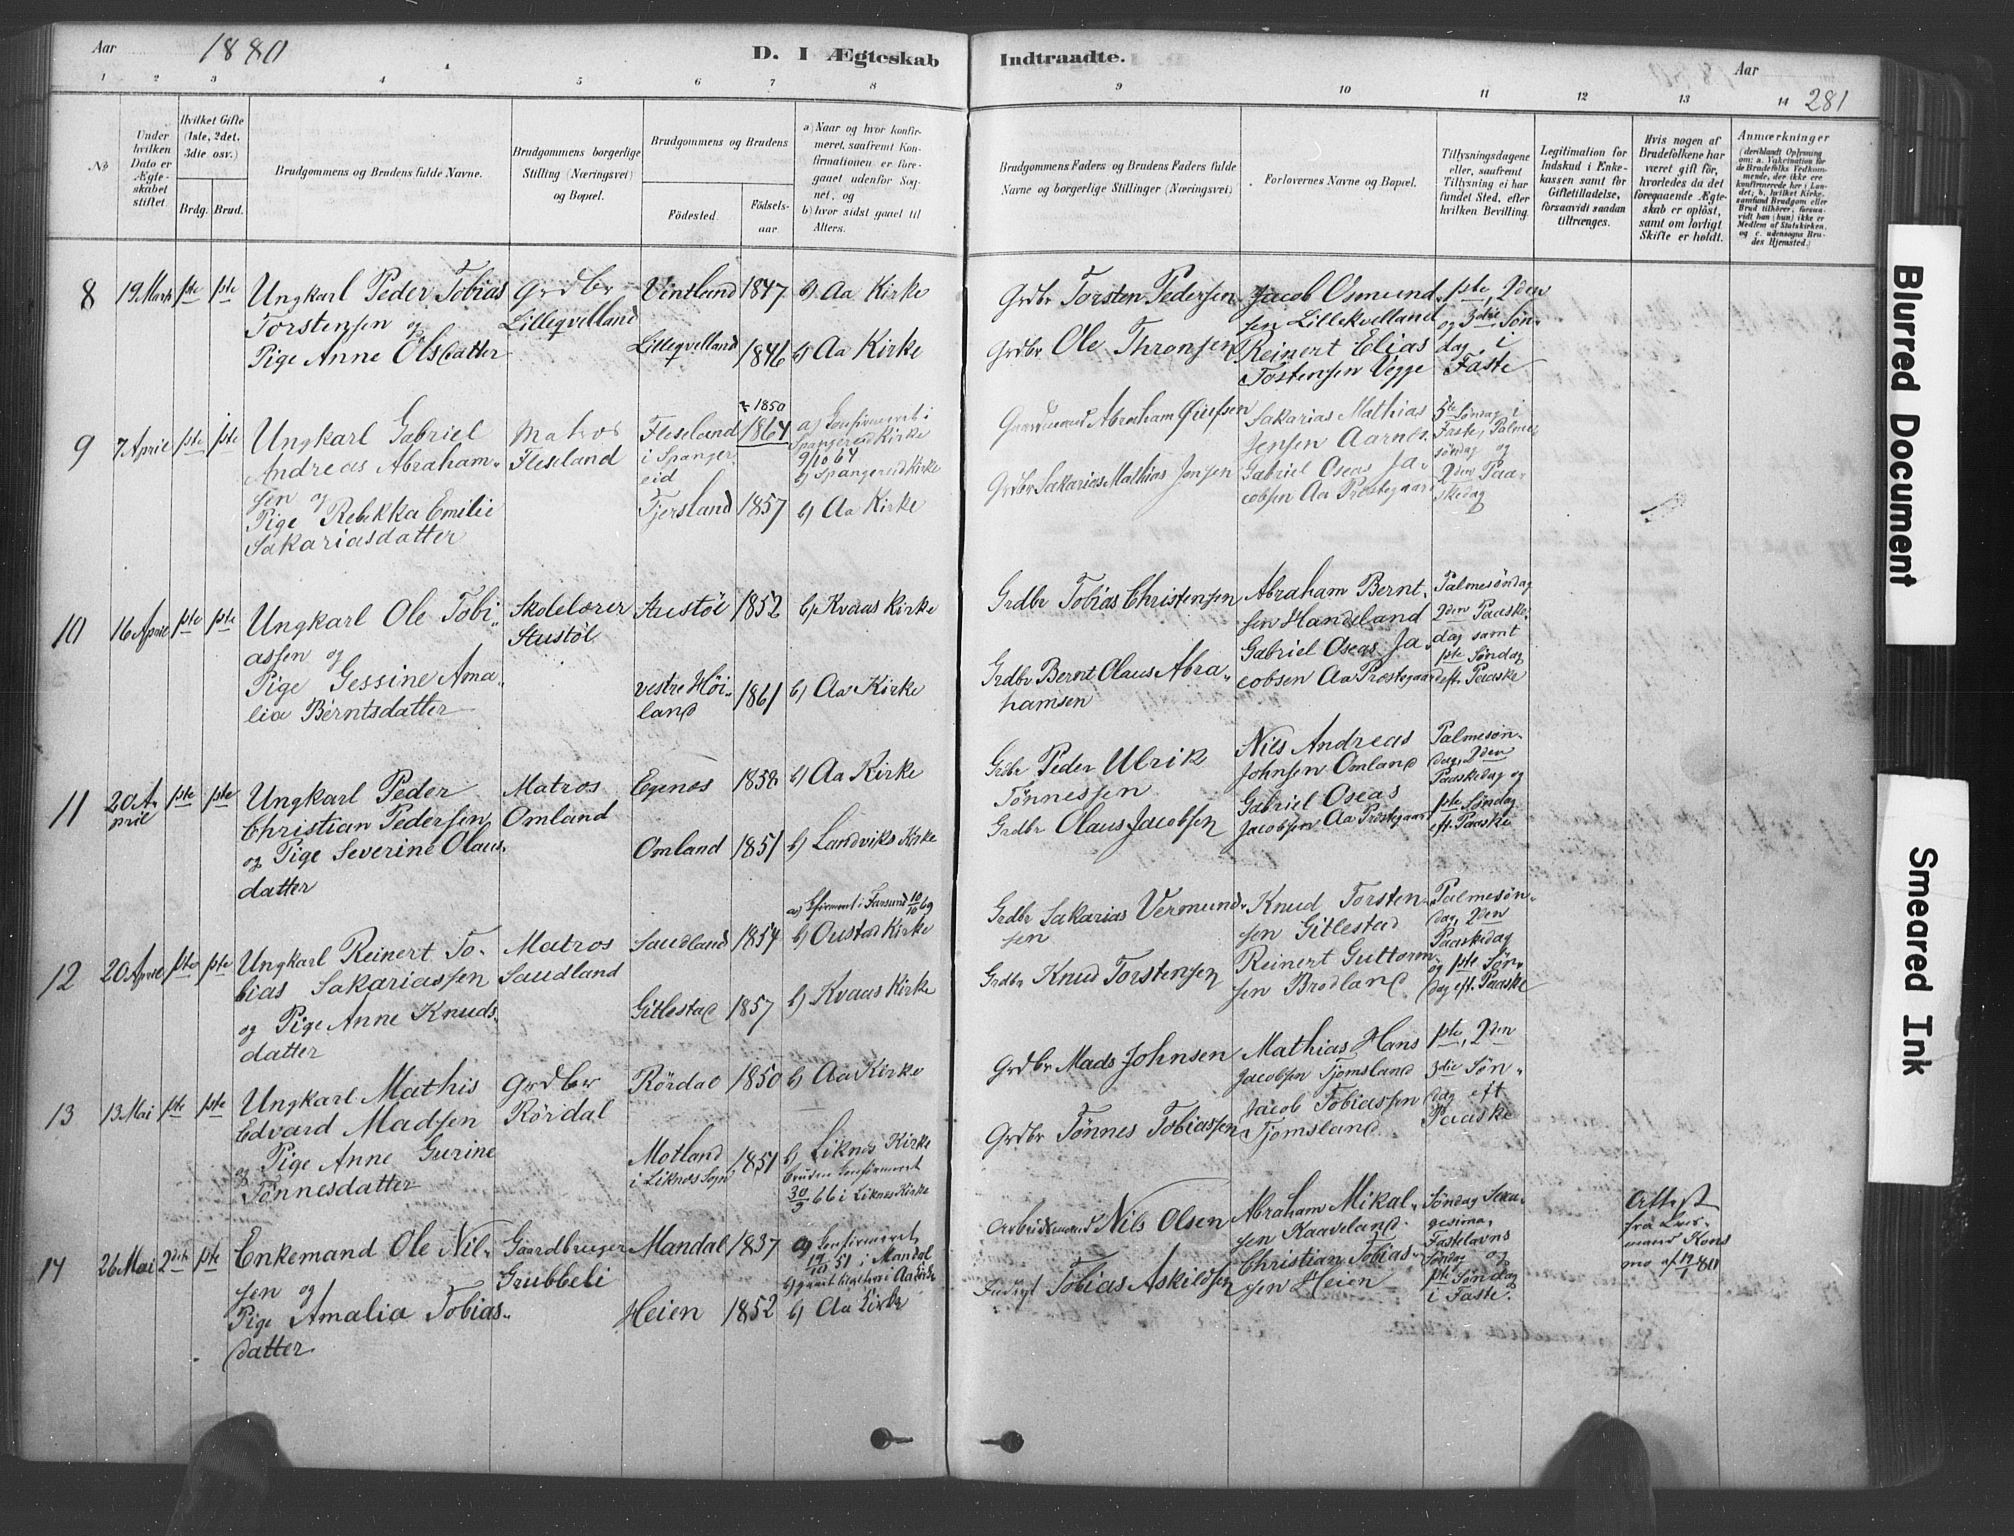 Aar 1880 D. I Ægteskab Indtraadte. Aar 281
1 2 3 4 5 6 7 8 9 10 11 12 13 14
No
Under hvilken Dato er Ægteskabet stiftet.
Hvilket Gifte (1ste, 2det, 3die osv.)
Brdg. Brud.
Brudgommens og Brudens fulde Navne.
Brudgommens borgerlige Stilling (Næringsvei) og Bopæl.
Brudgommens og Brudens
Födested. Födsels-aar.
a) Naar og hvor konfirmeret, saafremt Konfirmationen er foregaaet udenfor Sognet, og
b) hvor sidst gaaet til Alters.
Brudgommens Faders og Brudens Faders fulde Navne og borgerlige Stillinger (Næringsvei)
Forlovernes Navne og Bopæl.
Tillysningsdagene eller, saafremt Tillysning ei har fundet Sted, efter hvilken Bevilling.
Legitimation for Indskud i Enkekassen samt for Giftetilladelse, forsaavidt saadan tiltrænges.
Hvis nogen af Brudefolkene har været gift för, hvorledes da det foregaaende Ægteskab er oplöst, samt om lovligt Skifte er holdt.
Anmærkninger
8 19 Marts 1ste 1ste
Ungkarl Peder Tobias
Torstensen og
Pige Anne Olsdatter
Grdbr
Lilleqvelland
Vintland 1847 b) Aa Kirke
Lilleqvelland 1846 b) Aa Kirke
Grdbr Torsten Pedersen
Grdbr Ole Thronsen
Jacob Osmund
sen Lillekvelland
Reinert Elias
Tostensen Vegge
1ste, 2den
og 3die Søn-
dag i
Faste
9 7 April 1ste 1ste
Ungkarl Gabriel
Andreas Abraham-
sen og
Pige Rebekka Emilie
Sakariasdatter
Matros
Fleseland
Fleseland
i Spanger
eid
1850
1864
a) Confirmeret i
Spangereid Kirke
9/10 64
b) Spangereid Kirke
Tjersland 1857 b) Aa Kirke
Abraham
Grdbr Sakarias Mathias Jensen
Sakarias Mathias
Jensen Aarnes
Gabriel Oseas Ja-
cobsen Aa Præstegaard
5te Søndag i
Faste, Palme
søndag og
2den Paa-
skedag
10 16 April 1ste 1ste
Ungkarl Ole Tobi-
assen og
Pige Gessine Ama-
lia Berntsdatter
Skolelærer
Stustøl
Stustøl 1852 b) Kvaas Kirke
vestre Høi-
land 1861 b) Aa Kirke
Grdbr Tobias Christensen
Grdbr Bernt Olaus Abra-
hamsen
Abraham Bernt-
sen Handeland
Gabriel Oseas Ja-
cobsen Aa Præstegaard
Palmesøndag
2den Paaske-
dag samt
1ste Søndag
eft. Paaske
11 20 A-
pril 1ste 1ste
Ungkarl Peder
Christian Pedersen
og Pige Severine Olaus-
datter
Matros
Omland
Egenes 1858 b) Aa Kirke
Omland 1851 b) Landviks Kirke
Grdbr Peder Ulrik
Tønnessen
Grdbr Olaus Jacobsen
Nils Andreas
Johnsen Omland
Gabriel Oseas
Jacobsen Aa Præstegaard
Palmesøn-
dag, 2den
Paaskedag og
1ste Søndag
eft. Paaske
12 20 April 1ste 1ste
Ungkarl Reinert To-
bias Sakariassen
og Pige Anne Knuds-
datter
Matros
Saudland
Saudland 1854
a) Confirmeret i Farsund 10/10 69
b) Oustad Kirke
Gitlestad 1857 b) Kvaas Kirke
Grdbr Sakarias Vermund-
sen
Grdbr Knud Torstensen
Knud Torsten-
sen Gitlestad
Reinert Guttorm-
sen Brodland
Palmesøn-
dag, 2den
Paaskedag
og 1ste Søn-
dag eft. Paaske
13 13 Mai 1ste 1ste
Ungkarl Mathis
Edvard Madsen
og Pige Anne Gurine
Tønnesdatter
Grdbr
Rördal
Rördal 1850 b) Aa Kirke
Motland
i Liknes Sogn 1851 b) Liknes Kirke
Bruden Confirmeret
30/9 66 i Liknes Kirke
Grdbr Mads Johnsen
Grdbr Tönnes Tobiassen
Mathias Hans
Jacobsen Tjomsland
Jacob Tobiassen
Tjomsland
1ste, 2den
3die Søn-
dag eft
Paaske
14 26 Mai 2det 1ste
Enkemand Ole Nil-
sen og
Pige Amalia Tobias-
datter
Gaardbruger
Grubbeli
Mandal 1837
a) Confirmeret
i Mandal
Aa Kirke
Heien 1852 b) Aa Kirke
Arbeidsmand Nils Olsen
Tobias Askildsen
Abraham Mikal-
sen Kaaveland
Christian Tobias-
sen Heien
Søndag Sexa-
gesima,
Fastelavns
Søndag og
1ste Søndag
i Faste
Attest
fra Lens-
mand
Blurred Document
Smeared Ink